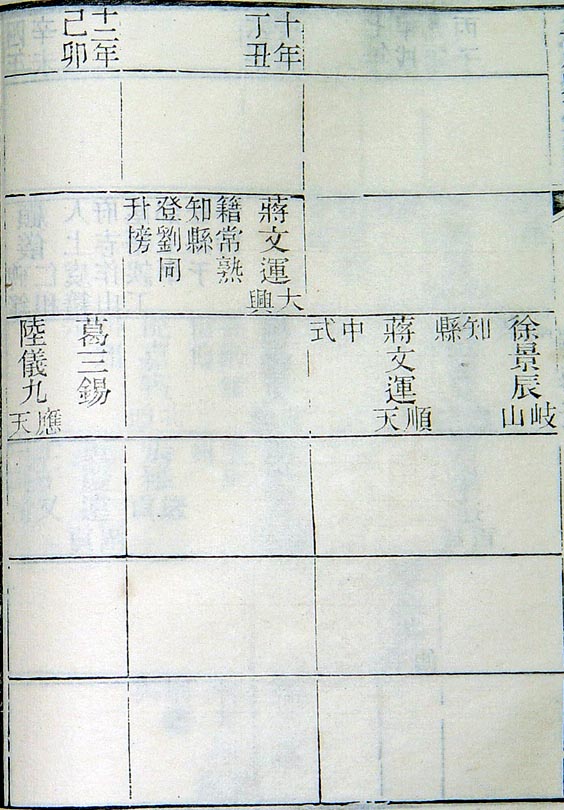 十年
丁丑
十二年
己卯
蔣文運大興
籍常熟
知縣
登劉同
升榜
徐景辰岐山
知縣
蔣文運順天
中式
葛三錫
陸儀九應天